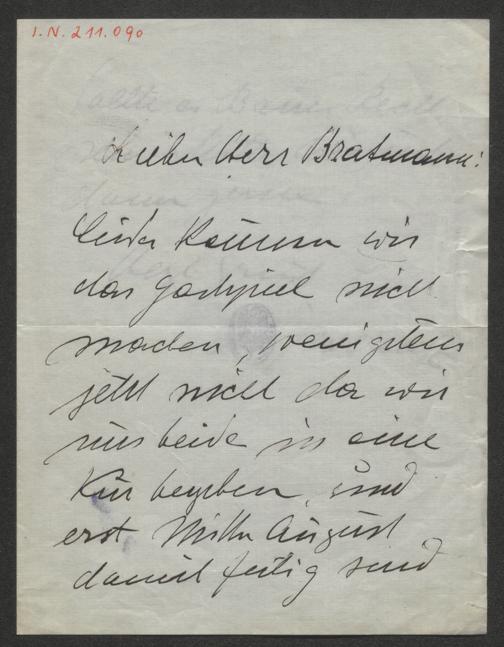 I.N. 211.090
Lieber Herr Bratmann!
leider können wir
das Gastspiel nicht
machen, wenigstens
jetzt nicht da wir
uns beide in eine
Kur begeben, und
erst Mitte August
damit fertig sind